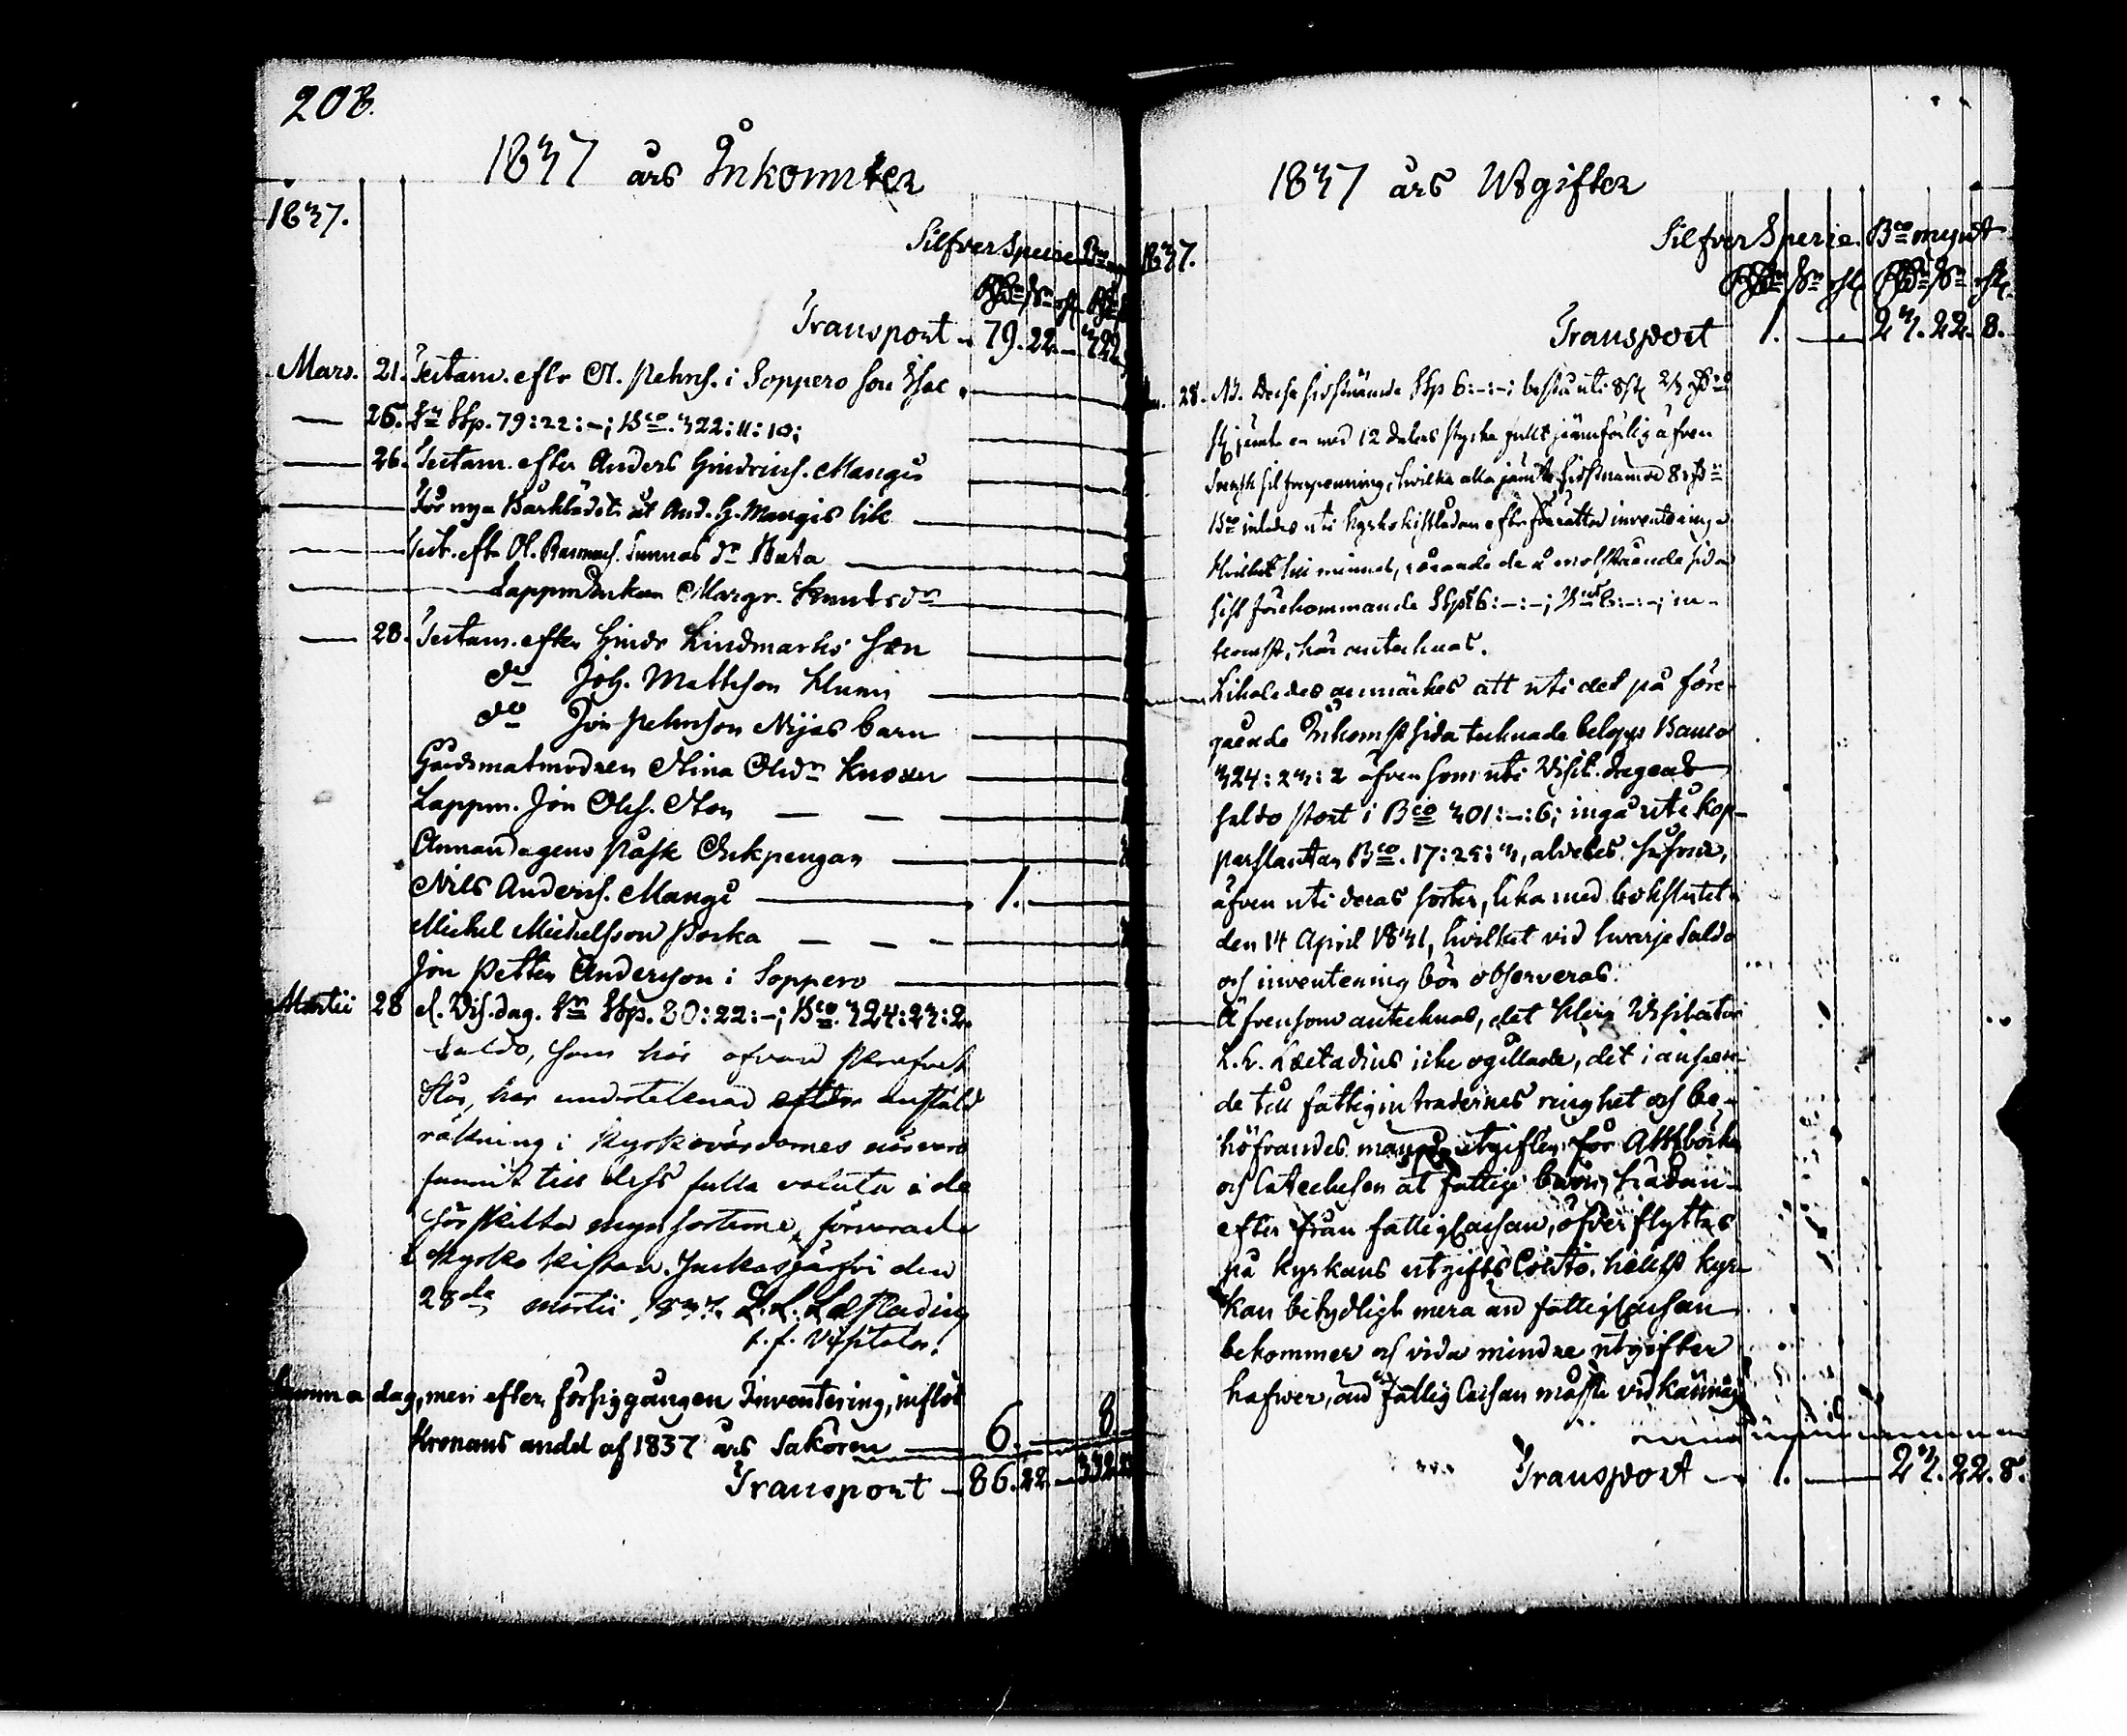 208.
1837 års Inkomster
1837.
Silfver Specie Bco
Transport 79.22.— 322
Mars. 21. Testam. eftr Ol. Pehrs. i Soppero son Isac
— 25. Sa Ssp. 79:22:–; Bco. 322:11:10;
— 26. Testam. efter Anders Hindrics. Mangis
— För nya Bårklädet åt And. H. Mangis lik
— Test. eftr Ol. Rasmus. dr
— Lappm Enkan Margr. Knutsdr
— 28. Testam. efter Hindr Lindmarks Son
do Joh. Mattsson Klumi
do Jon Pehrsson Nijas barn
Gårdsmatmodren Stina Olsdr
Lappm. Jon Ols.
Annandagens Påsk Orkpengar
Nils Anders. Mangi — 1.—
Michel Michelsson Porka
Jon Petter Andersson i Soppero
Martii 28 el. Vis.dag. Sa Ssp. 80:22:–; Bco. 324:23:2.
Saldo, som här ofvan
står, har undertecknad efter anstäld
räkning i Kyrkovärdarnes närvaro
funnit till dess fulla valuta i de
särskilta myntsorterne, förvarade
i Kyrko kistan. Juckasjärfvi den
28de Martii 1837. L. L. Læstadius
t. f. Visitator.
Samma dag, men efter försiggången Inventering, inflöt
Kronans andel af 1837 års Sakören — 6.— 8.
Transport — 86.22.— 332.23
1837 års Utgifter
1837.
Silfver Specie. Bco mynt
Transport 1.— — 23.22.8.
28. NB. Desse sistnämde Ssp 6:–:–; bestå uti 8 st 2/3
st jemte en med 12 dalers stycke fullt jämförlig äfven
Svensk silfverpenning, hvilka alla jämte sistnämde 8 Rd
Bco inlades uti Kyrkokistlådan efter förrättad inventering
Hvilket till minnes, rörande de å motstående sida
sist förekommande Ssp 6:–:–; Bco 8:–:–; in-
komst, här antecknas.
— Likaledes anmärkes att uti det på före-
gående Inkomst sida tecknade belopp Banco
324:23:2 äfvensom uti Visit. dagens
saldo stort i Bco 301:–:6; ingå uti kop-
parslantar Bco. 17:25:3, aldeles
äfven uti deras sorter, lika med bokslutet
den 14 April 1831, hvilket vid hvarje Saldo
och inventering bör observeras.
— Äfvensom antecknas, det Herr Visitator
L. L. Læstadius icke ogillade, det i anseen-
de till fattigintradernes ringhet och be-
höfvandes mångd, utgiften för Abcböcker
och Catecheser åt fattige barn, hädan-
efter från fattigCassan, öfverflyttas
på kyrkans utgifts Conto, hälst kyr-
kan betydligt mera än fattigCassan
bekommer och vida mindre utgifter
hafver, än fattigCassan måste vidkännas
Transport — 1.— — 23.22.8.